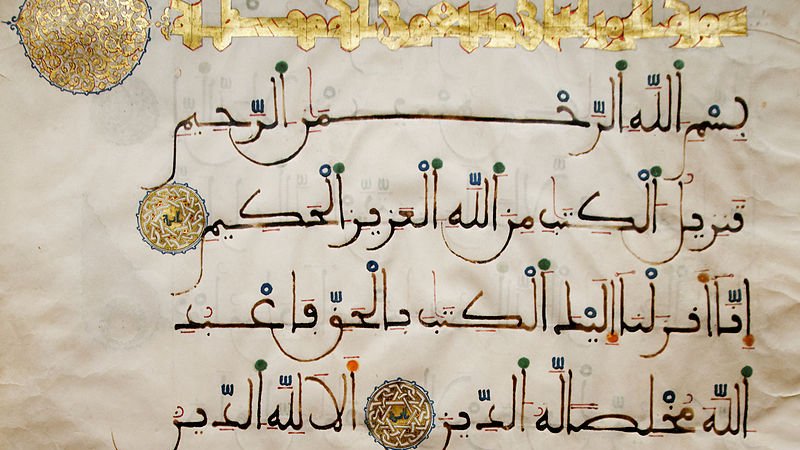 سورة
بِسْمِ اللَّهِ الرَّحْمَنِ الرَّحِيمِ
تَنزِيلُ الْكِتَبِ مِنَ اللَّهِ الْعَزِيزِ الْحَكِيمِ
إِنَّا أَنزَلْنَا إِلَيْكَ الْكِتَبَ بِالْحَقِّ فَاعْبُدِ
اللَّهَ مُخْلِصًا لَّهُ الدِّينَ أَلَا لِلَّهِ الدِّينُ